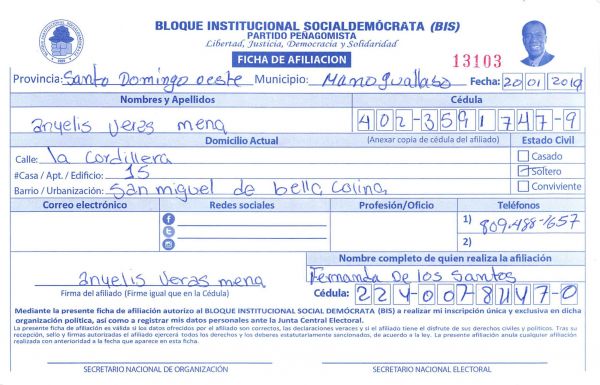 BLOQUE INSTITUCIONAL SOCIALDEMÓCRATA (BIS)
PARTIDO PEÑAGOMISTA
Libertad, Justicia, Democracia y Solidaridad
FICHA DE AFILIACION
13103
Provincia: Santo Domingo oeste Municipio: Manoguallabo Fecha: 20 01 2019
Nombres y Apellidos Cédula
anyelis veras mena 402-3591747-9
Domicilio Actual (Anexar copia de cédula del afiliado) Estado Civil
Calle: la Cordillera Casado
#Casa / Apt. / Edificio: 15 Soltero
Barrio / Urbanización: San miguel de bella Colina Conviviente
Correo electrónico Redes sociales Profesión/Oficio Teléfonos
1) 809.488-1657
2)
Nombre completo de quien realiza la afiliación
anyelis veras mena Fernanda De los Santos
Firma del afiliado (Firme igual que en la Cédula) Cédula: 224-0078447-0
Mediante la presente ficha de afiliación autorizo al BLOQUE INSTITUCIONAL SOCIAL DEMÓCRATA (BIS) a realizar mi inscripción única y exclusiva en dicha
organización política, así como a registrar mis datos personales ante la Junta Central Electoral.
La presente ficha de afiliación es válida si los datos ofrecidos por el afiliado son correctos, las declaraciones veraces y si el afiliado tiene el disfrute de sus derechos civiles y políticos. Tras su
recepción, sello y firmas autorizadas el afiliado ejercerá todos los derechos y los deberes estatutariamente sancionados, de acuerdo a la ley. La presente afiliación anula cualquier afiliación
realizada con anterioridad a la fecha que aparece en esta ficha.
SECRETARIO NACIONAL DE ORGANIZACIÓN SECRETARIO NACIONAL ELECTORAL